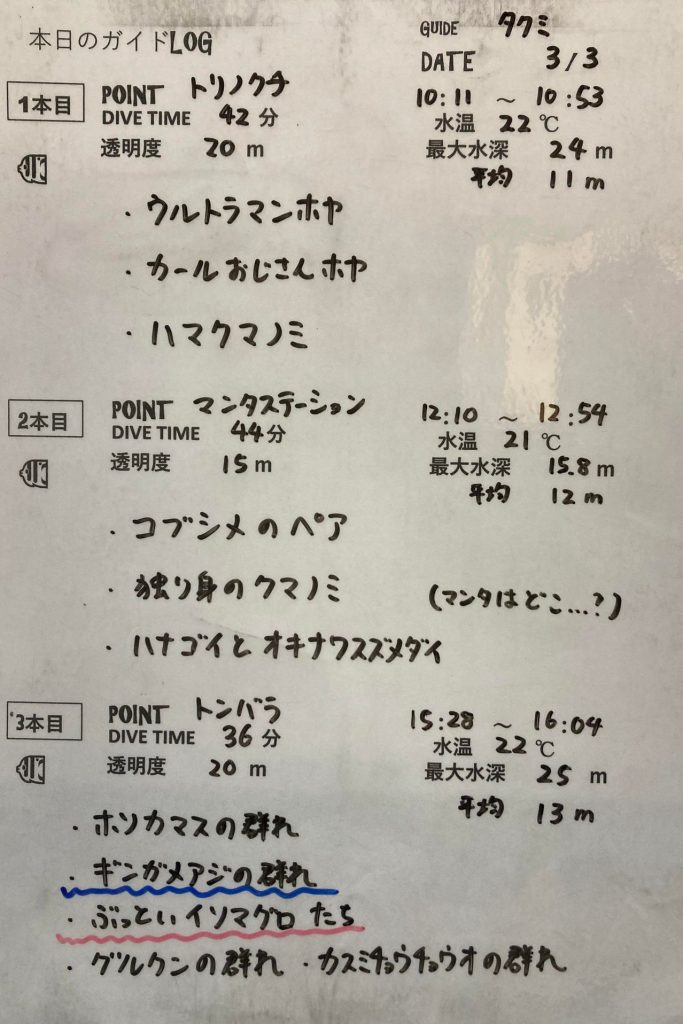 本日のガイドLOG
GUIDE タクミ
DATE 3/3
1本目
POINT トリノクチ
10:11 ～ 10:53
DIVE TIME 42分
水温 22℃
透明度 20m
最大水深 24m
平均 11m
・ウルトラマンホヤ
・カールおじさんホヤ
・ハマクマノミ
2本目
POINT マンタステーション
12:10 ～ 12:54
DIVE TIME 44分
水温 21℃
透明度 15m
最大水深 15.8m
平均 12m
・コブシメのペア
・独り身のクマノミ
(マンタはどこ…?)
・ハナゴイとオキナワスズメダイ
3本目
POINT トンバラ
15:28 ～ 16:04
DIVE TIME 36分
水温 22℃
透明度 20m
最大水深 25m
平均 13m
・ホソカマスの群れ
・ギンガメアジの群れ
・ぶっといイソマグロたち
・グルクンの群れ ・カスミチョウチョウオの群れ